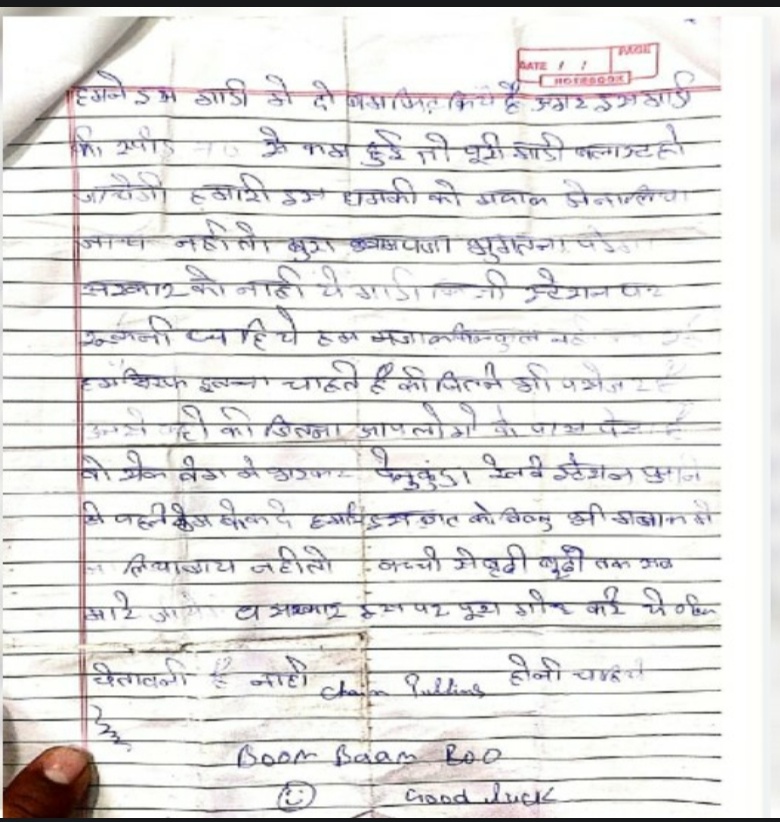 DATE / / PAGE
NOTEBOOK
हमने इस गाडी मे दो बम फिट किये है अगर इस गाडी
की स्पीड 70 से कम हुई तो पूरी गाडी ब्लास्ट हो
जायेगी हमारी इस धमकी को मजाक मे ना लिया
जाय नही तो बुरा भुगतना पडेगा
सरकार को नाही ये गाडी किसी स्टेशन पर
रूकनी चाहिये हम मजाक बिल्कुल नही
हम सिरफ इतना चाहते है की जितने भी पसेंजर है
उनसे कहो की जितना आप लोगो के पास पैसा है
वो ऐक बेग मे डालकर पेनुकुंडा रेलवे स्टेशन
से पहले फेक दे हमारि इस बात को बिल्कु भी मजाक मे
न लिया जाय नही तो बच्चो से बुढी तक सब
मारे जाये व सरकार इस पर पूरा गोर करे ये
चेतावनी है नाही Chain Pulling होनी चाहिये
Boom Baam Boo
Good luck